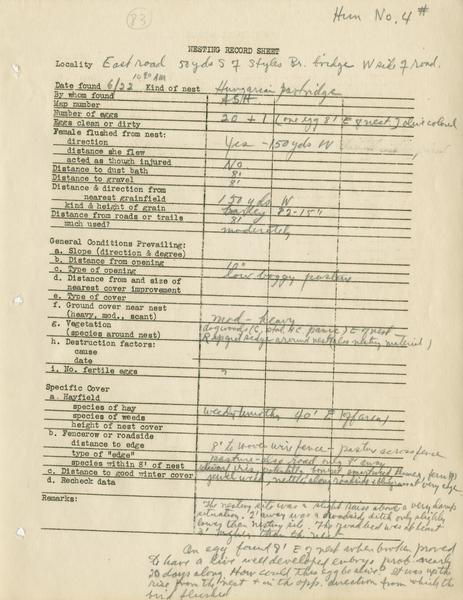 83
Hun No. 4 #
NESTING RECORD SHEET
Locality East road 50 yds S of Styles Br. bridge W side of road.
10:30 AM
Date found 6/22 Kind of nest Hungarian partridge
By whom found ASH
Map number
Number of eggs 20 + 1 (one egg 8' E of nest.) olive colored
Eggs clean or dirty
Female flushed from nest: Yes - 150 yds W
direction
distance she flew
acted as though injured No
Distance to dust bath 8'
Distance to gravel 8'
Distance & direction from
nearest grainfield 150 yds W
kind & height of grain barley 12-15"
Distance from roads or trails 8'
much used? moderately
General Conditions Prevailing:
a. Slope (direction & degree)
b. Distance from opening 10"
c. Type of opening low boggy pasture
d. Distance from and size of
nearest cover improvement
e. Type of cover
f. Ground cover near nest
(heavy, mod., scant) med - heavy
g. Vegetation dogwoods (C. stol. & C. panic.) E of nest -
(species around nest) Ripgut sedge around nest (also nesting material)
h. Destruction factors:
cause
date
i. No. fertile eggs ?
Specific Cover
a. Hayfield
species of hay
species of weeds weeds timothy 40' E
height of nest cover
b. Fencerow or roadside
distance to edge 8' to woven wire fence - pasture across fence
type of "edge" pasture - also road only 8' away
species within 8' of nest
c. Distance to good winter cover
d. Recheck data
Remarks: The nesting site was a slight raise above a very damp
situation. 2' away was a roadside ditch only slightly
lower than nesting site. The roadbed was at least
3' higher than the nest
An egg found 8' E of nest when broken proved
to have a live well developed embryo prob. nearly
20 days along. How could this egg be alive? It was up the
rise from the nest + in the opp. direction from which the
bird flushed